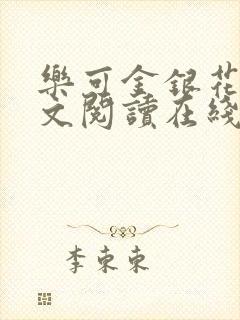 樂可金銀花
文閱讀在綫
李東東